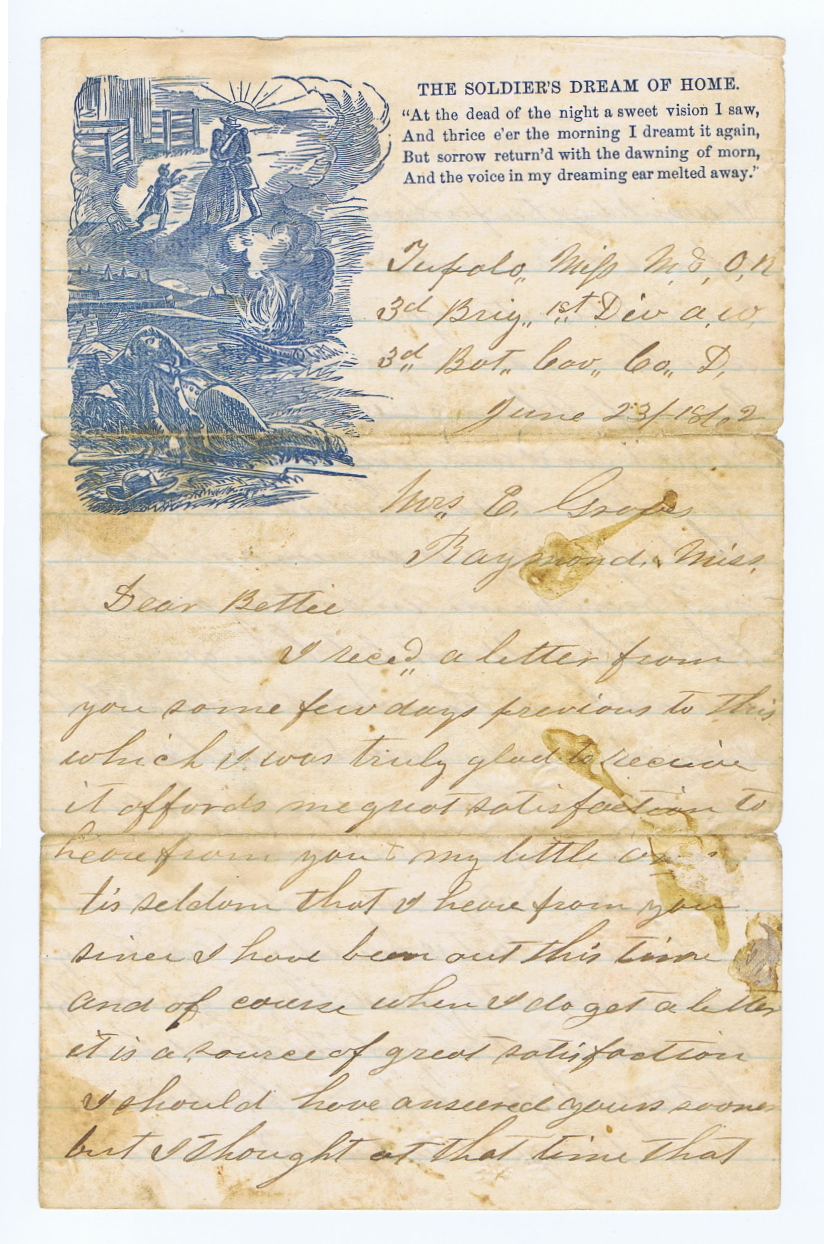 THE SOLDIER'S DREAM OF HOME.
"At the dead of the night a sweet vision I saw,
And thrice e'er the morning I dreamt it again,
But sorrow return'd with the dawning of morn,
And the voice in my dreaming ear melted away."
Tupolo,, Miss M, & , O, R
3d Brig,, 1st Div a, W,
3d Bat,, Cav,, Co,, D,
June 23/ 1862
Mrs E.
Raymond, Miss,
Dear Bettie
I recd a letter from
you some few days previous to this
which I was truly glad to receive
it affords me great satisfaction to
heare from you & my little
tis seldom that I heare from you
since I have been out this time
and of course when I do get a letter
it is a source of great satisfaction
I should have ansered yours sooner
but I thought at that time that